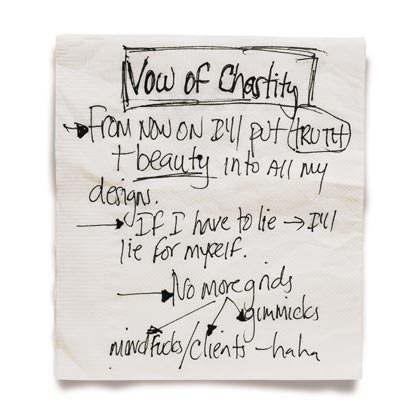 Vow of Chastity
From now on I'll put TRUTH
+ beauty into all my
designs.
If I have to lie → I'll
lie for myself.
No more grids
gimmicks
mindfucks/clients - haha